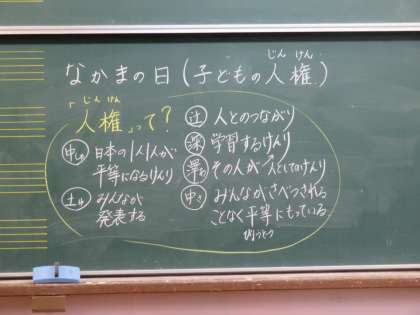 なかまの日(子どもの人権)
じんけん
「人権」って?
じんけん
中しゅ 日本の1人1人が
平等になるけんり
土井 みんなが
発表する
辻 人とのつながり
深 学習するけんり
その人が人としてのけんり
中さ みんながさべつされる
ことなく平等にもっている